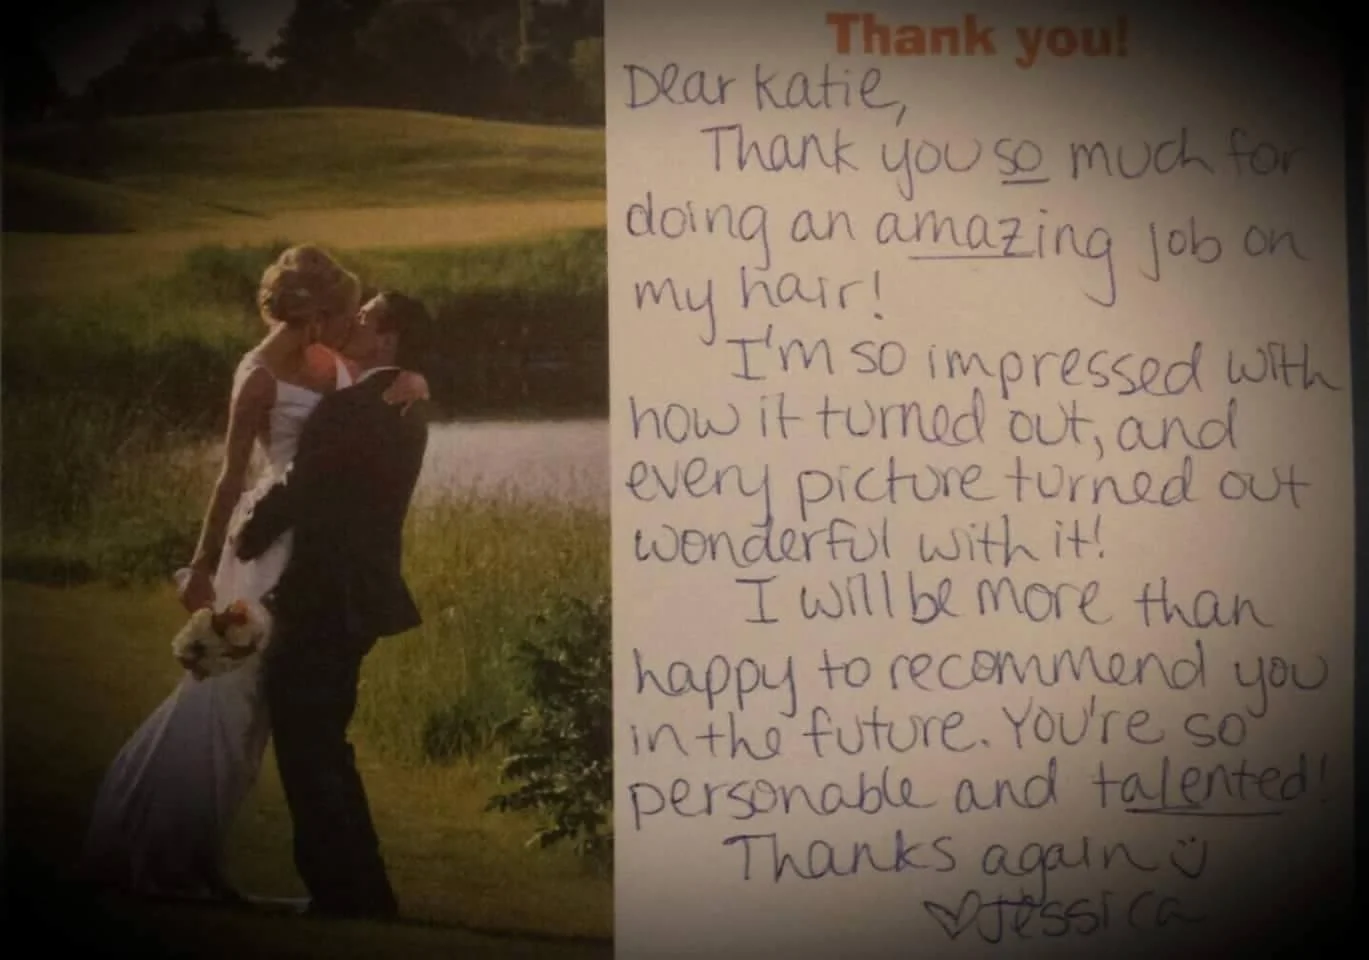 Thank you!
Dear Katie,
Thank you so much for
doing an amazing job on
my hair!
I'm so impressed with
how it turned out, and
every picture turned out
wonderful with it!
I will be more than
happy to recommend you
in the future. You're so
personable and talented!
Thanks again
Jessica